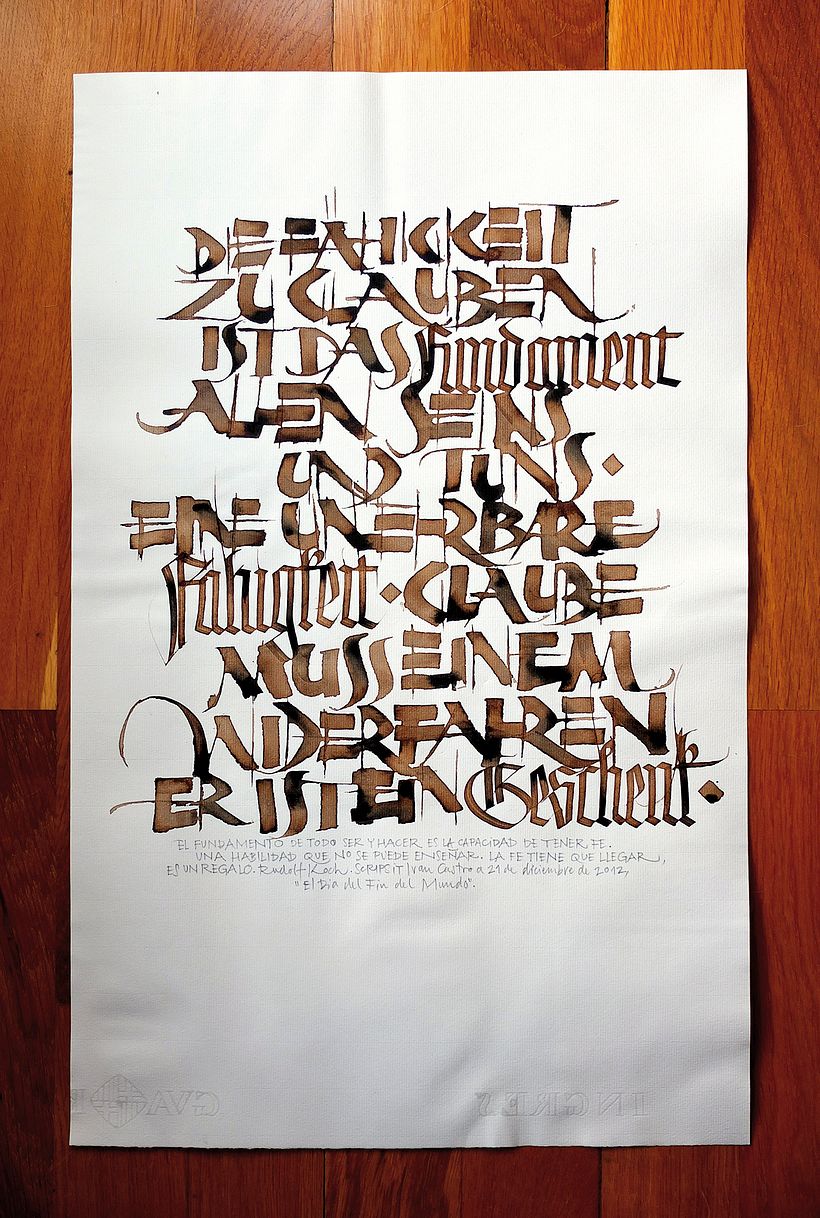 DIE FÄHIGKEIT
ZU GLAUBEN
IST DAS Fundament
ALLEN SEINS
UND TUNS ·
EINE UNLEHRBARE
Fähigkeit · GLAUBE
MUSS EINEM
WIDERFAHREN
ER IST EIN Geschenk ·
EL FUNDAMENTO DE TODO SER Y HACER ES LA CAPACIDAD DE TENER FE.
UNA HABILIDAD QUE NO SE PUEDE ENSEÑAR. LA FE TIENE QUE LLEGAR,
ES UN REGALO. Rudolf Koch. SCRIPSIT Ivan Castro a 21 de diciembre de 2012,
"El Día del Fin del Mundo".
INGRES